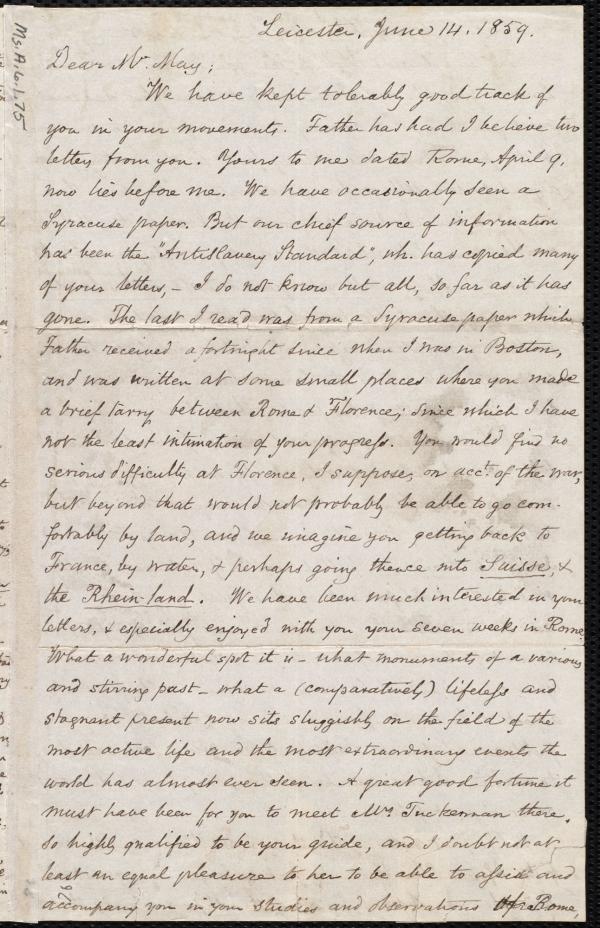 Leicester, June 14. 1859.
Ms. A. 6. 1. 75
Dear Mr. May;
We have kept tolerably good track of
you in your movements. Father has had I believe two
letters from you. Yours to me dated Rome, April 9,
now lies before me. We have occasionally seen a
Syracuse paper. But our chief source of information
has been the "Antislavery Standard", wh. has copied many
of your letters, - I do not know but all, so far as it has
gone. The last I read was from a Syracuse paper which
Father received a fortnight since when I was in Boston,
and was written at some small places where you made
a brief tarry between Rome & Florence; since which I have
not the least intimation of your progress. You would find no
serious difficulty at Florence, I suppose, on acct. of the war,
but beyond that would not probably be able to go com-
fortably by land, and we imagine you getting back to
France, by water, & perhaps going thence into Suisse, &
the Rhein-land. We have been much interested in your
letters, & especially enjoyed with you your seven weeks in Rome.
What a wonderful spot it is - what monuments of a various
and stirring past - what a (comparatively) lifeless and
stagnant present now sits sluggishly on the field of the
most active life and the most extraordinary events the
world has almost ever seen. A great good fortune it
must have been for you to meet Mrs Tuckerman there,
so highly qualified to be your guide, and I doubt not at
least an equal pleasure to her to be able to assist and
accompany you in your studies and observations Rome,